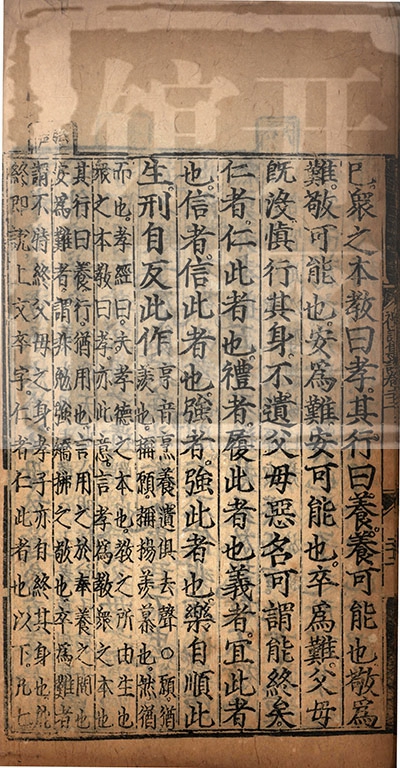 已衆之本教曰孝其行曰養養可能也敬爲
難敬可能也安爲難安可能也卒爲難父母
既沒慎行其身不遺父母惡名可謂能終矣
仁者仁此者也禮者履此者也義者宜此者
也信者信此者也強者強此者也樂自順此
生刑自反此作
亨音烹養遺俱去聲○願猶
羨也稱願稱揚羨慕也然猶
而也孝經曰夫孝德之本也教之所由生也
衆之本教曰孝亦此意言孝爲教衆之本也
其行曰養行猶用也言用之於奉養之間也
安爲難者謂非勉強矯拂之敬也卒爲難者
謂不特終父母之身孝子亦自終其身也能
終即說上文卒字仁者仁此者也以下凡七